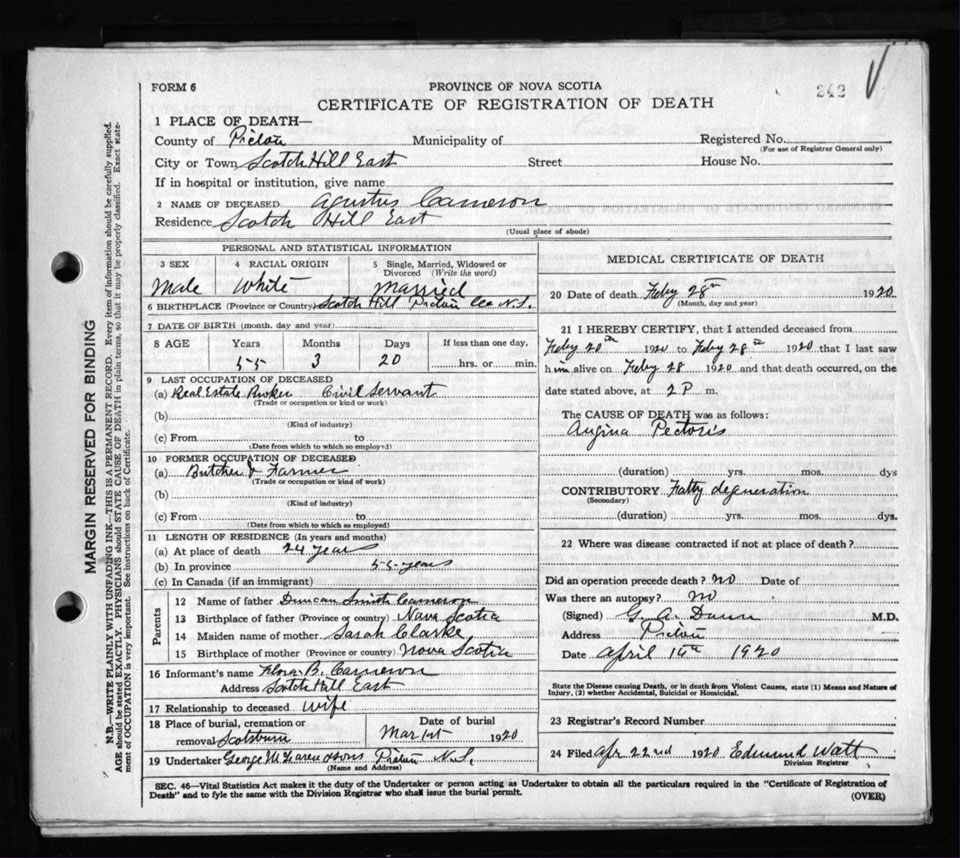 FORM 6
PROVINCE OF NOVA SCOTIA
242
CERTIFICATE OF REGISTRATION OF DEATH
1 PLACE OF DEATH—
County of Pictou Municipality of Registered No.
(For use of Registrar General only)
City or Town Scotch Hill East Street House No.
If in hospital or institution, give name
2 NAME OF DECEASED Agustus Cameron
Residence Scotch Hill East
(Usual place of abode)
PERSONAL AND STATISTICAL INFORMATION
3 SEX 4 RACIAL ORIGIN 5 Single, Married, Widowed or Divorced (Write the word)
Male White Married
6 BIRTHPLACE (Province or Country) Scotch Hill Pictou Co N.S.
7 DATE OF BIRTH (month, day and year)
8 AGE Years Months Days If less than one day,
55 3 20 hrs. or min.
9 LAST OCCUPATION OF DECEASED
(a) Real Estate Broker Civil Servant
(Trade or occupation or kind or work)
(b)
(Kind of industry)
(c) From to
(Date from which to which so employed)
10 FORMER OCCUPATION OF DECEASED
(a) Butcher & Farmer
(Trade or occupation or kind of work)
(b)
(Kind of industry)
(c) From to
(Date from which to which so employed)
11 LENGTH OF RESIDENCE (In years and months)
(a) At place of death 24 years
(b) In province 55 years
(c) In Canada (if an immigrant)
Parents
12 Name of father Duncan Smith Cameron
13 Birthplace of father (Province or country) Nova Scotia
14 Maiden name of mother Sarah Clarke
15 Birthplace of mother (Province or country) Nova Scotia
16 Informant's name Flora B. Cameron
Address Scotch Hill East
17 Relationship to deceased wife
18 Place of burial, cremation or removal Scotsburn
Date of burial
Mar 1st 1920
19 Undertaker George & Sons Pictou N.S.
(Name and Address)
MEDICAL CERTIFICATE OF DEATH
20 Date of death Feby 28th 1920
(Month, day and year)
21 I HEREBY CERTIFY, that I attended deceased from
Feby 20th 1920 to Feby 28th 1920 that I last saw
him alive on Feby 28 1920 and that death occurred, on the
date stated above, at 2 P m.
The CAUSE OF DEATH was as follows:
Angina Pectoris
(duration) yrs. mos. dys
CONTRIBUTORY Fatty degeneration
(Secondary)
(duration) yrs. mos. dys.
22 Where was disease contracted if not at place of death?
Did an operation precede death? no Date of
Was there an autopsy? no
(Signed) G. A. Dunn M.D.
Address Pictou
Date April 1920
State the Disease causing Death, or in death from Violent Causes, state (1) Means and Nature of
Injury, (2) whether Accidental, Suicidal or Homicidal.
23 Registrar's Record Number
24 Filed Apr 22nd 1920 Edmund Watt
Division Registrar
SEC. 46—Vital Statistics Act makes it the duty of the Undertaker or person acting as Undertaker to obtain all the particulars required in the "Certificate of Registration of
Death" and to fyle the same with the Division Registrar who shall issue the burial permit.
(OVER)
MARGIN RESERVED FOR BINDING
N.B.—WRITE PLAINLY WITH UNFADING INK—THIS IS A PERMANENT RECORD. Every item of information should be carefully supplied.
AGE should be stated EXACTLY. PHYSICIANS should STATE CAUSE OF DEATH in plain terms, so that it may be properly classified. Exact state-
ment of OCCUPATION is very important. See instructions on back of Certificate.